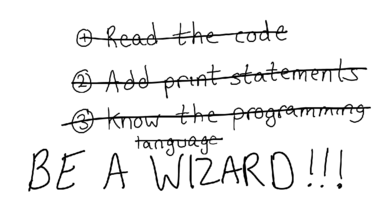 ① Read the code
② Add print statements
③ Know the programming
language
BE A WIZARD!!!